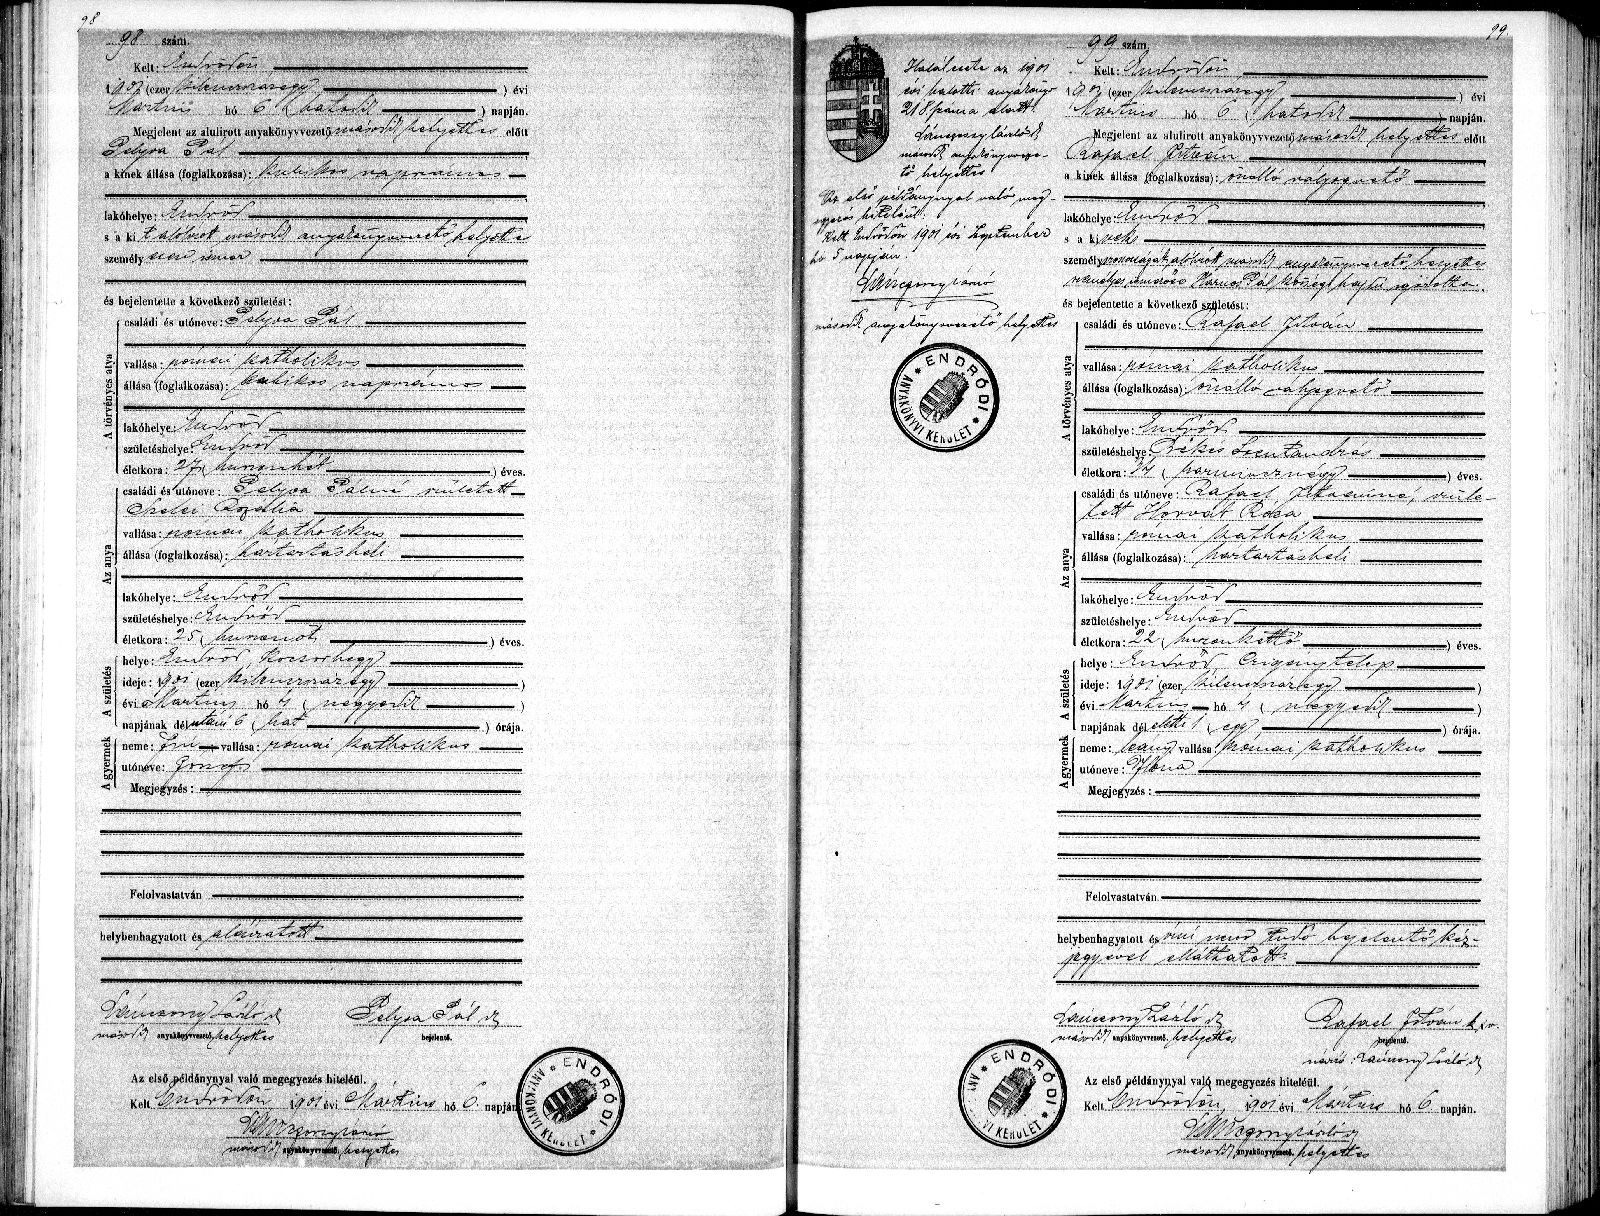 98
98 szám.
Kelt: Endrődön
1901 (ezer kilenczszázegy) évi
Mártius hó 6 (hatodik) napján.
Megjelent az alulirott anyakönyvvezető másodh. helyettes előtt
Pelyva Pál
a kinek állása (foglalkozása): kubikos napszámos
lakóhelye: Endrőd
s a kit alólirott másodh. anyakönyvvezető helyettes
személyesen ismer
és bejelentette a következő születést:
A törvényes atya
családi és utóneve: Pelyva Pál
vallása: római katholikus
állása (foglalkozása): kubikos napszámos
lakóhelye: Endrőd
születéshelye: Endrőd
életkora: 27 (huszonhét) éves.
Az anya
családi és utóneve: Pelyva Pálné született
Rozália
vallása: római katholikus
állása (foglalkozása): háztartásbeli
lakóhelye: Endrőd
születéshelye: Endrőd
életkora: 25 (huszonöt) éves.
A születés
helye: Endrőd, Kocsorhegy
ideje: 1901 (ezer kilenczszázegy)
évi Mártius hó 4 (negyedik)
napjának délutáni 6 (hat) órája.
A gyermek
neme: fiu vallása: római katholikus
utóneve: József
Megjegyzés:
Felolvastatván
helybenhagyatott és aláiratott
Lánczony László
másodh. anyakönyvvezető, helyettes
Pelyva Pál
bejelentő.
Az első példánynyal való megegyezés hiteléül.
Kelt Endrődön, 1901 évi Mártius hó 6. napján
másodh. anyakönyvvezető, helyettes
ENDRŐDI ANYAKÖNYVI KERÜLET
99
Halálesete az 1901
évi halotti anyakönyv
218 száma alatt.
Lánczony László
másodh. anyakönyvveze-
tő helyettes
Az első példánynyal való meg-
egyezés hiteléül.
Kelt Endrődön 1901 évi Szeptember
hó 5 napján.
másodh. anyakönyvvezető helyettes
ENDRŐDI ANYAKÖNYVI KERÜLET
99 szám.
Kelt: Endrődön
1901 (ezer kilenczszázegy) évi
Mártius hó 6 (hatodik) napján.
Megjelent az alulirott anyakönyvvezető, másodh. helyettes előtt
Rafael István
a kinek állása (foglalkozása): önálló vályogvető
lakóhelye: Endrőd
s a kinek
személyazonosságát alólirott másodh. anyakönyvvezető helyettes
személyes ismerőse Pál községi hajdu igazolta.
és bejelentette a következő születést:
A törvényes atya
családi és utóneve: Rafael István
vallása: római katholikus
állása (foglalkozása): önálló vályogvető
lakóhelye: Endrőd
születéshelye: Békés Szentandrás
életkora: 34 (harmincznégy) éves.
Az anya
családi és utóneve: Rafael Istvánné, szüle-
tett Horvát Róza
vallása: római katholikus
állása (foglalkozása): háztartásbeli
lakóhelye: Endrőd
születéshelye: Endrőd
életkora: 22 (huszonkettő) éves.
A születés
helye: Endrőd, Czigánytelep
ideje: 1901 (ezer kilenczszázegy)
évi Mártius hó 4 (negyedik)
napjának délelőtti 1 (egy) órája.
A gyermek
neme: leány vallása: római katholikus
utóneve: Ilona
Megjegyzés:
Felolvastatván
helybenhagyatott és irni nem tudó bejelentő kéz-
jegyével elláttatott.
Lánczony László
másodh. anyakönyvvezető, helyettes
Rafael István
bejelentő.
Lánczony László
Az első példánynyal való megegyezés hiteléül.
Kelt Endrődön, 1901 évi Mártius hó 6 napján.
másodh. anyakönyvvezető, helyettes
ENDRŐDI ANYAKÖNYVI KERÜLET